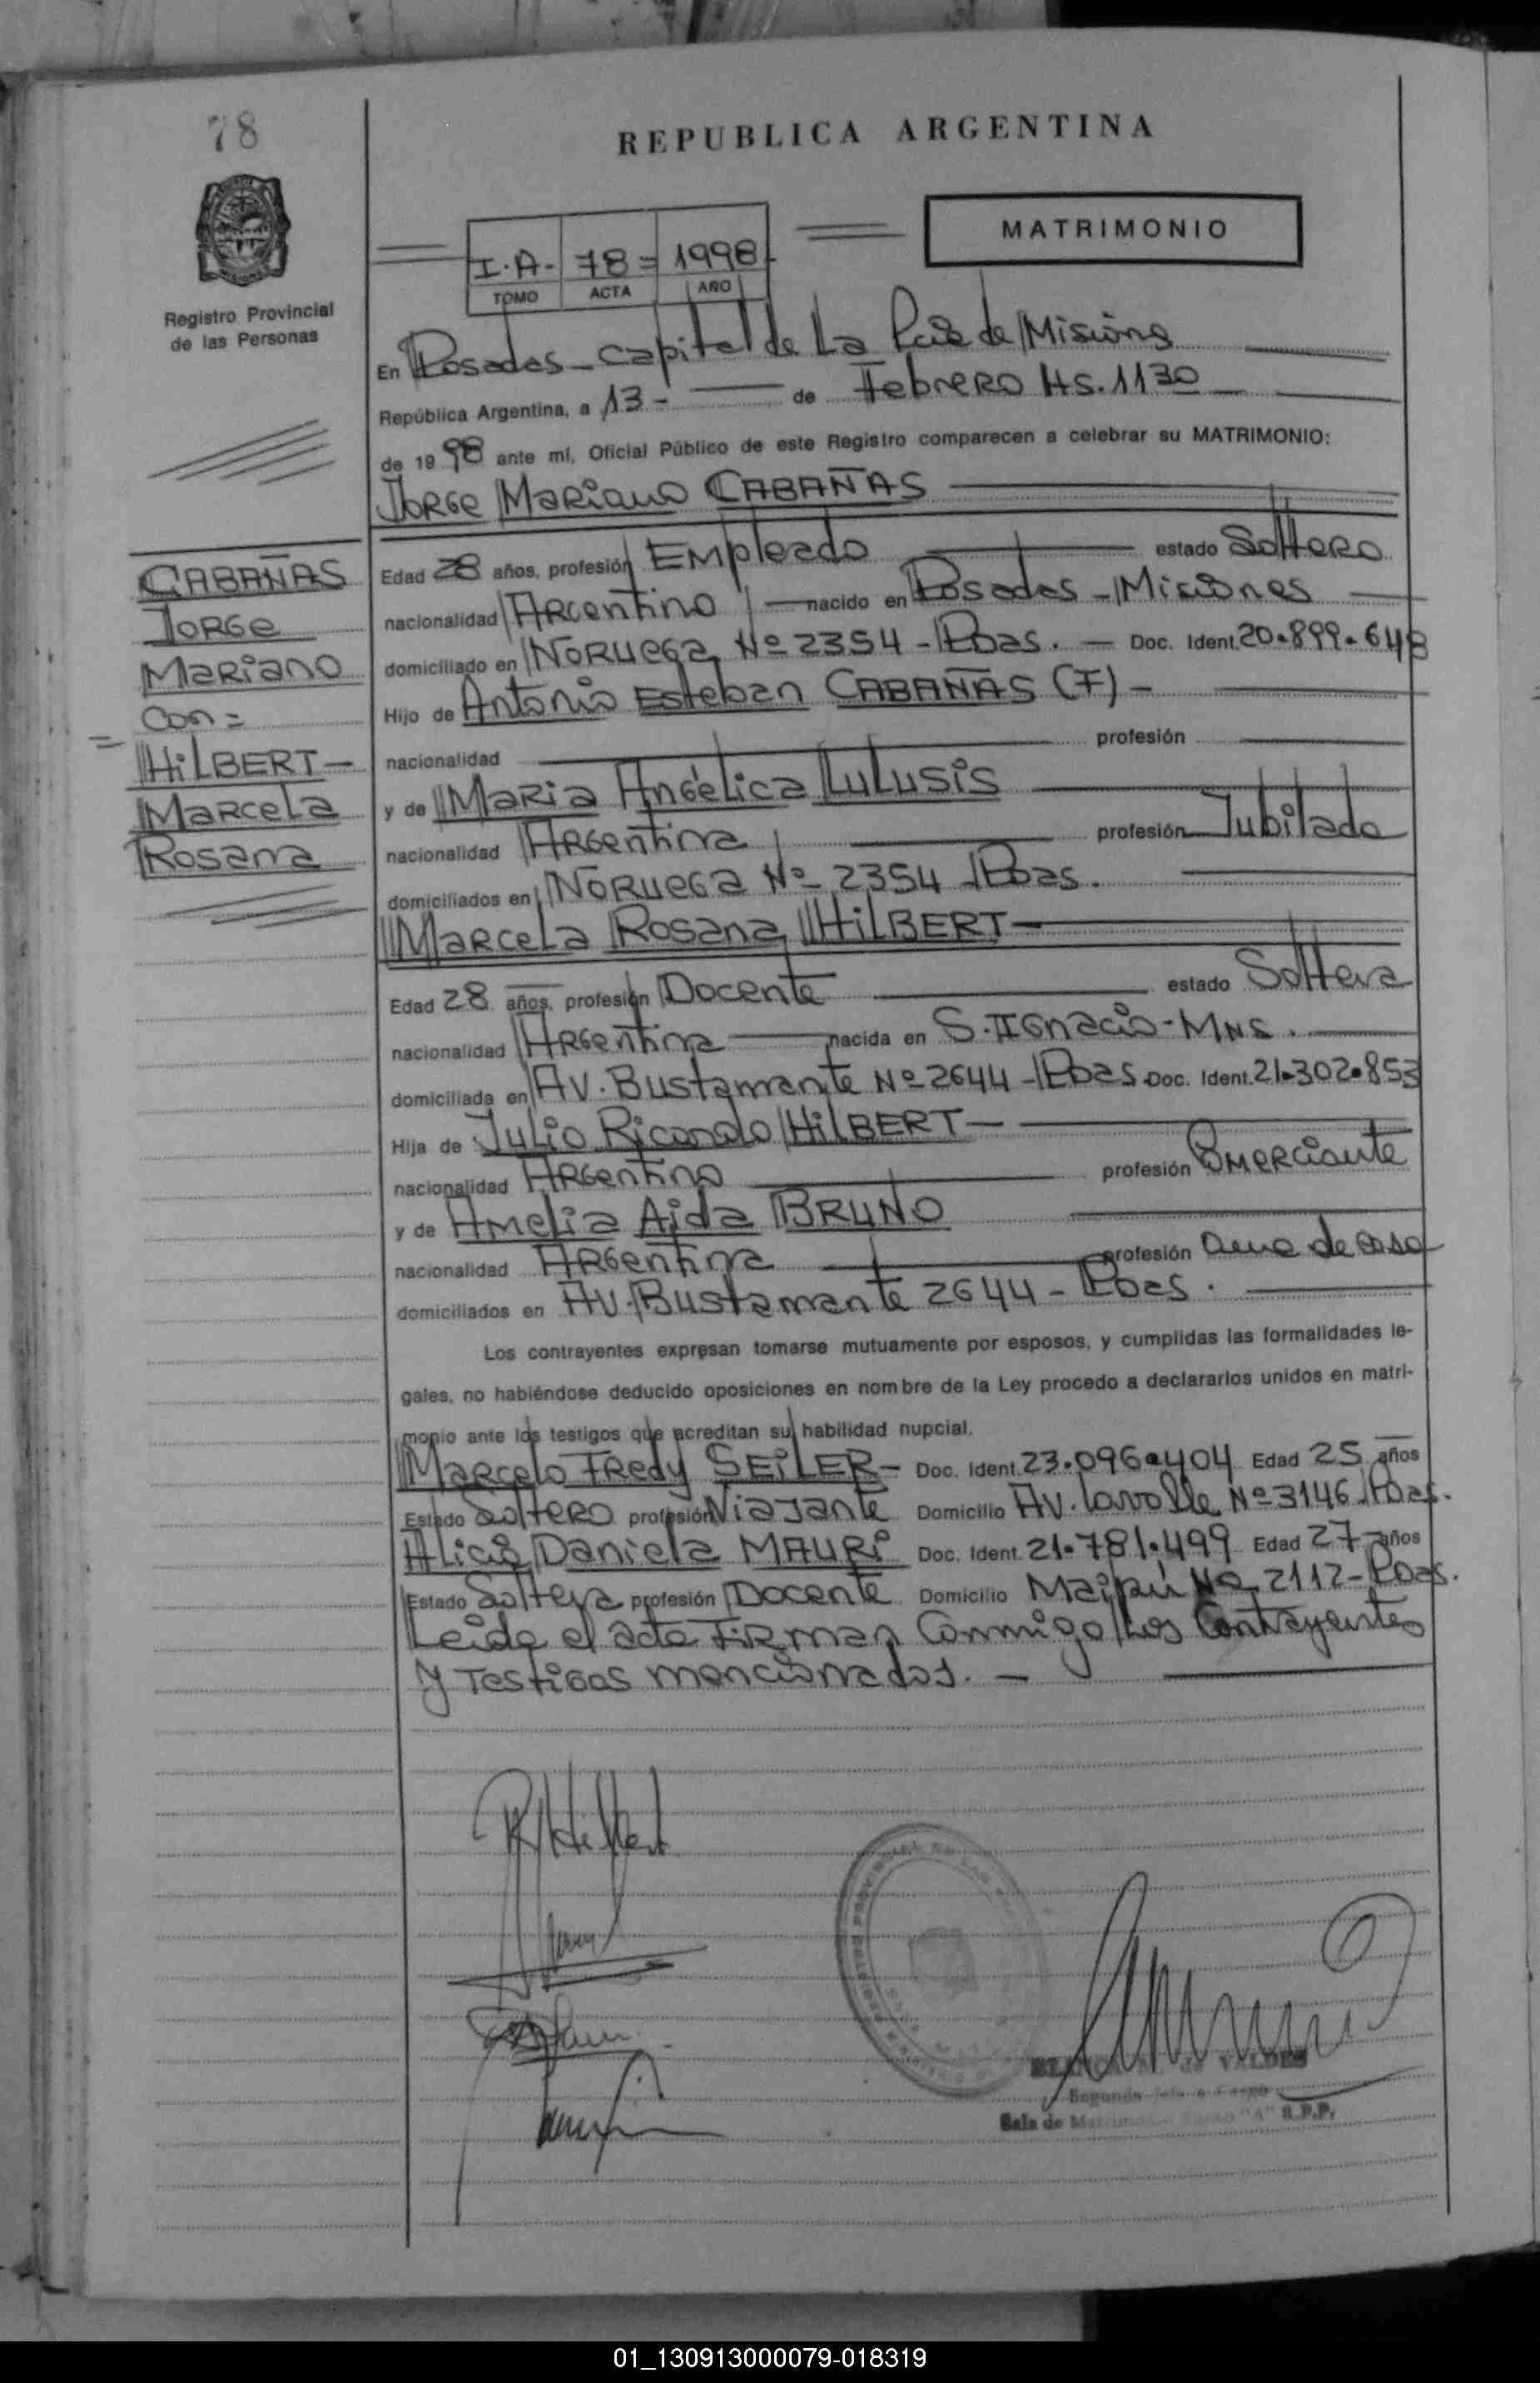 78
REPUBLICA ARGENTINA
MATRIMONIO
I.A- 78= 1998
TOMO ACTA AÑO
Registro Provincial
de las Personas
En Posadas - Capital de La de Misiones
República Argentina, a 13 - de Febrero Hs. 1130
de 1998 ante mí, Oficial Público de este Registro comparecen a celebrar su MATRIMONIO:
Jorge Mariano CABAÑAS
CABAÑAS
Jorge
Mariano
Con =
= HILBERT -
Marcela
Rosana
Edad 28 años, profesión Empleado estado Soltero
nacionalidad Argentino nacido en Posadas - Misiones
domiciliado en Noruega Nº 2354 - Pdas. - Doc. Ident. 20.899.648
Hijo de Antonio Esteban CABAÑAS (F) -
nacionalidad profesión
y de Maria Angélica Lulusis
nacionalidad Argentina profesión Jubilada
domiciliados en Noruega Nº 2354 - Pdas.
Marcela Rosana HILBERT -
Edad 28 años, profesión Docente estado Soltera
nacionalidad Argentina nacida en S. Ignacio - Mns.
domiciliada en Av. Bustamante Nº 2644 - Pdas. Doc. Ident. 21.302.853
Hija de Julio Ricardo HILBERT -
nacionalidad Argentino profesión Comerciante
y de Amelia Aida BRUNO
nacionalidad Argentina profesión Ama de casa
domiciliados en Av. Bustamante 2644 - Pdas.
Los contrayentes expresan tomarse mutuamente por esposos, y cumplidas las formalidades le-
gales, no habiéndose deducido oposiciones en nombre de la Ley procedo a declararlos unidos en matri-
monio ante los testigos que acreditan su habilidad nupcial.
Marcelo Fredy SEILER - Doc. Ident. 23.096.404 Edad 25 años
Estado Soltero profesión Viajante Domicilio Av. Lavalle Nº 3146 - Pdas.
Alicia Daniela MAURI Doc. Ident. 21.781.499 Edad 27 años
Estado Soltera profesión Docente Domicilio Maipú Nº 2112 - Pdas.
Leida el acta Firman Conmigo Los Contrayentes
y Testigos mencionados. -
RHilbert
VALDES
Segundo
Sala de "A" R.P.P.
01_130913000079-018319